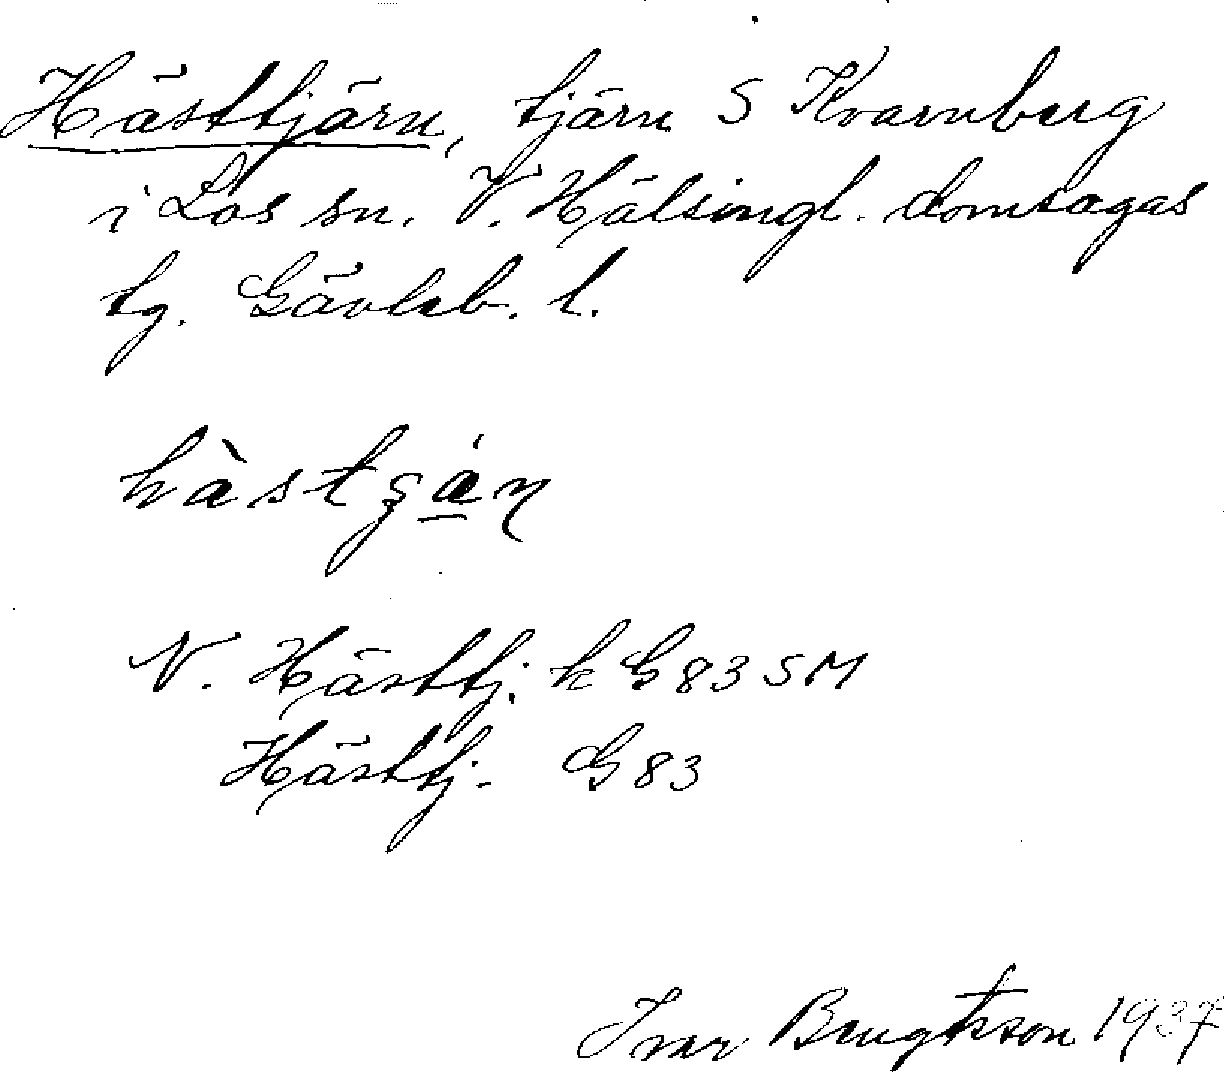 Hästtjärn, tjärn S Kvarnberg
i Los sn. V. Hälsingl. domsagas
tg. Gävleb. l.
hàst
N. Hästtj. k G 83 SM
Hästtj. G 83
Ivar Bengtsson 1937